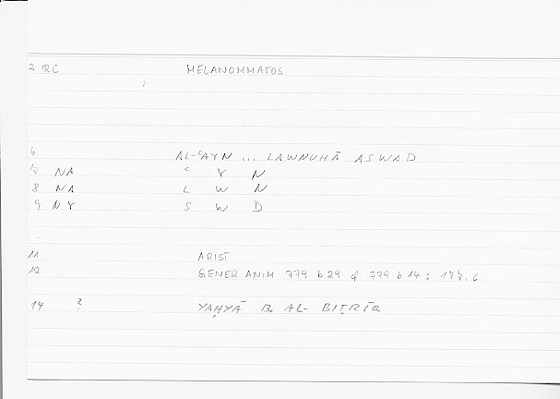 2 RC MELANOMMATOS
6 AL-ʿAYN ... LAWNUHĀ ASWAD
7 NA ʿ Y N
8 NA L W N
9 NY S W D
11 ARIST
12 GENER ANIM 779 b 29 cf. 779 b 14 :
14 ? YAḤYĀ B. AL-BIṬRĪQ